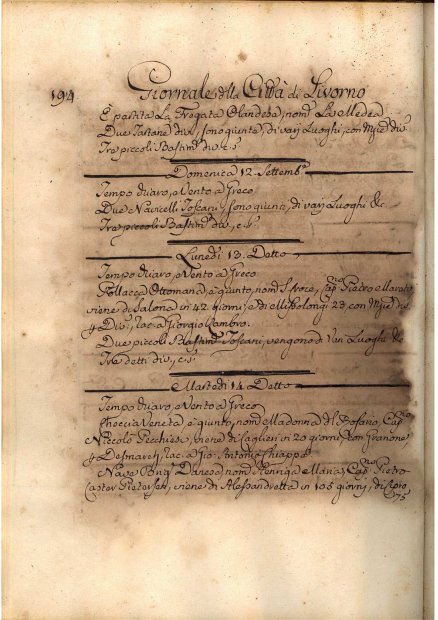 194
Giornale della Città di Livorno
È partita La Fregata Olandese, nom.ta La Medea
Due Tartane div.e, sono giunte, di varij Luoghi, con
Tre piccoli Bastim.ti div. c.s.
Domenica 12. Settemb.e
Tempo chiaro, e Vento a Greco
Due Navicelli Toscani, sono giunti, di varij Luoghi &c.
Tre piccoli Bastim.ti div., c.s.
Lunedì 13. Detto
Tempo chiaro, e Vento a Greco
Pollacca Ottomana, è giunto, nom.ta S. Croce, Cap.no Pietro
viene di Salona in 42 giorni, e di Missolongi 23, con
Div., rac. a Giorgio
Due piccoli Bastim.ti Toscani, vengono di Vari Luoghi &c
Tre detti div., c.s.
Martedì 14. Detto
Tempo chiaro, e Vento a Greco
Veneta, è giunto, nom.ta Madonna del Rosario, Cap.no
Niccolò viene di Caglieri in 20 giorni con Granone
rac. a Gio: Antonio Chiappe
Nave Danese, nom.ta Henriga Maria, Cap.no Pietro
viene di Alessandretta in 105 giorni, di Cipro
75